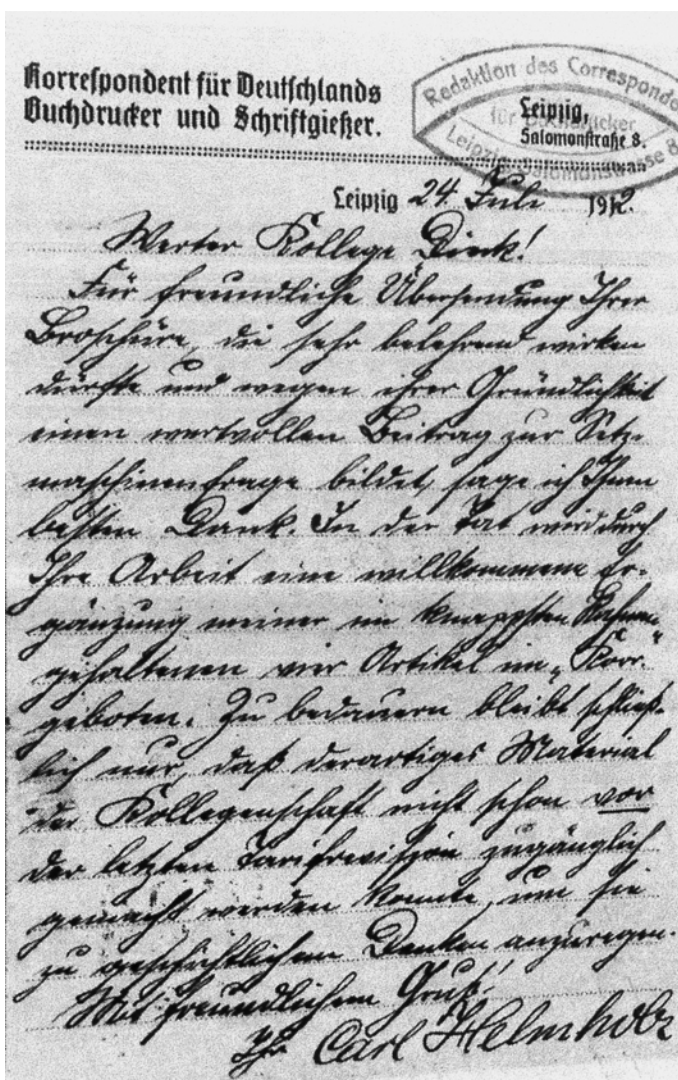 Korrespondent für Deutschlands
Buchdrucker und Schriftgießer.
Redaktion des Corresponden
für Buchdrucker
Leipzig, Salomonstrasse 8
Leipzig,
Salomonstraße 8.
Leipzig 24. Juli 1912.
Werter Kollege Dinck!
Für freundliche Übersendung Ihrer
Broschüre, die sehr belehrend wirken
dürfte und wegen ihrer Gründlichkeit
einen wertvollen Beitrag zur Setz-
maschinenfrage bildet, sage ich Ihnen
besten Dank. In der Tat wird durch
Ihre Arbeit eine willkommene Er-
gänzung meiner im knappsten Rahmen
gehaltenen vier Artikel im „Korr.“
geboten. Zu bedauern bleibt schließ-
lich nur, daß derartiges Material
der Kollegenschaft nicht schon vor
der letzten Tarifrevision zugänglich
gemacht werden konnte, um sie
zu geschichtlichem Denken anzuregen.
Mit freundlichem Gruß!
Ihr Carl Helmholz